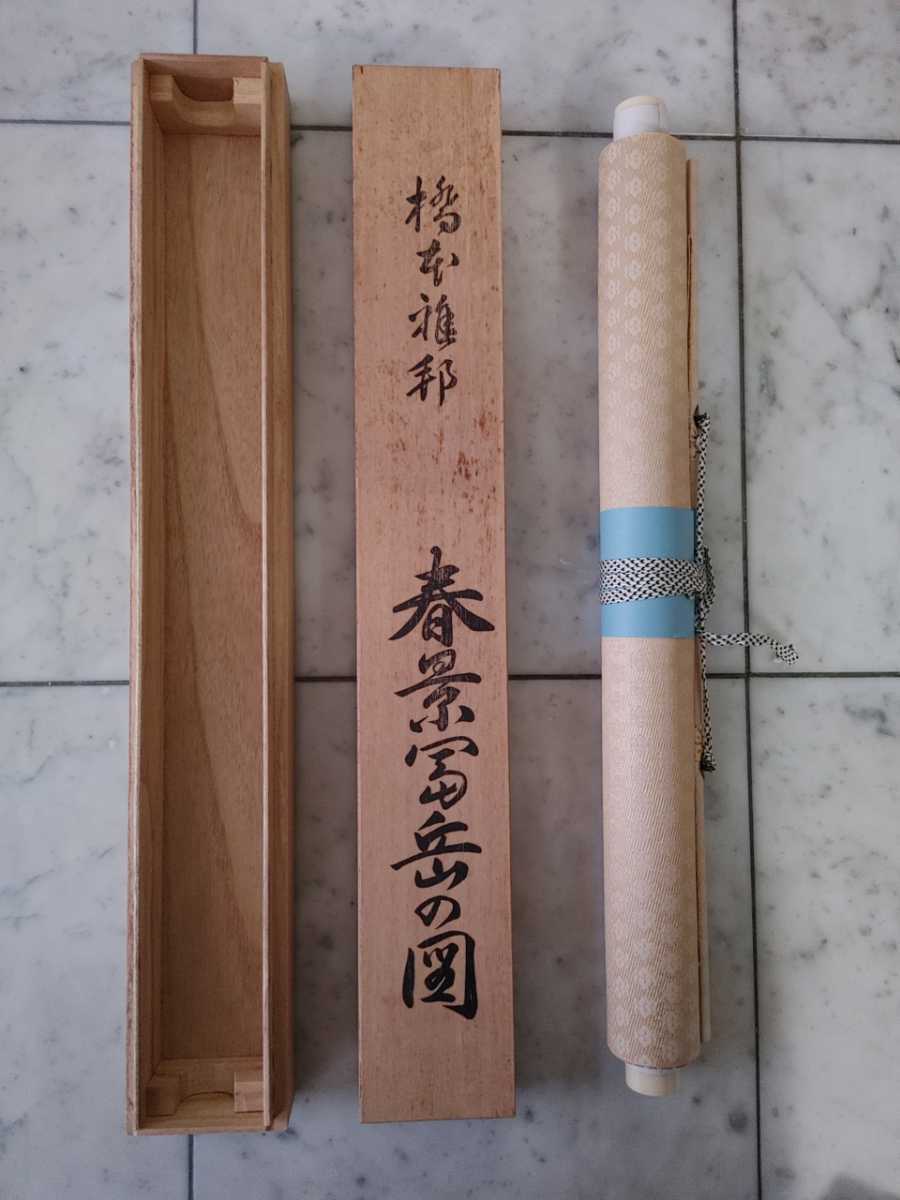 橋本雅邦
春景冨岳の図